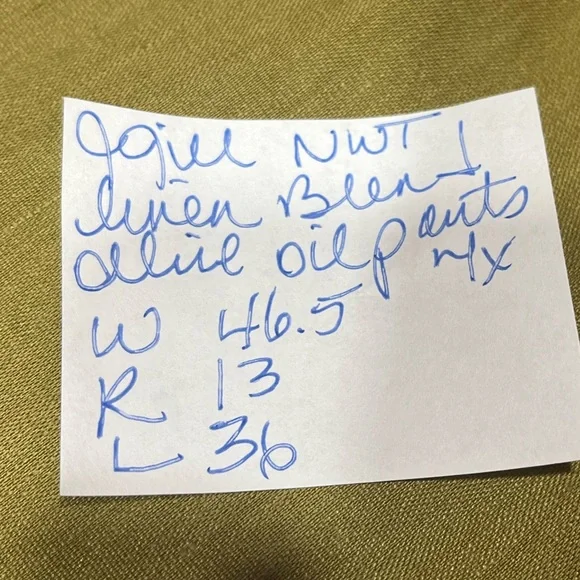 Jgill NWT
linen Blend
olive oil pants
W 46.5
R 13
L 36